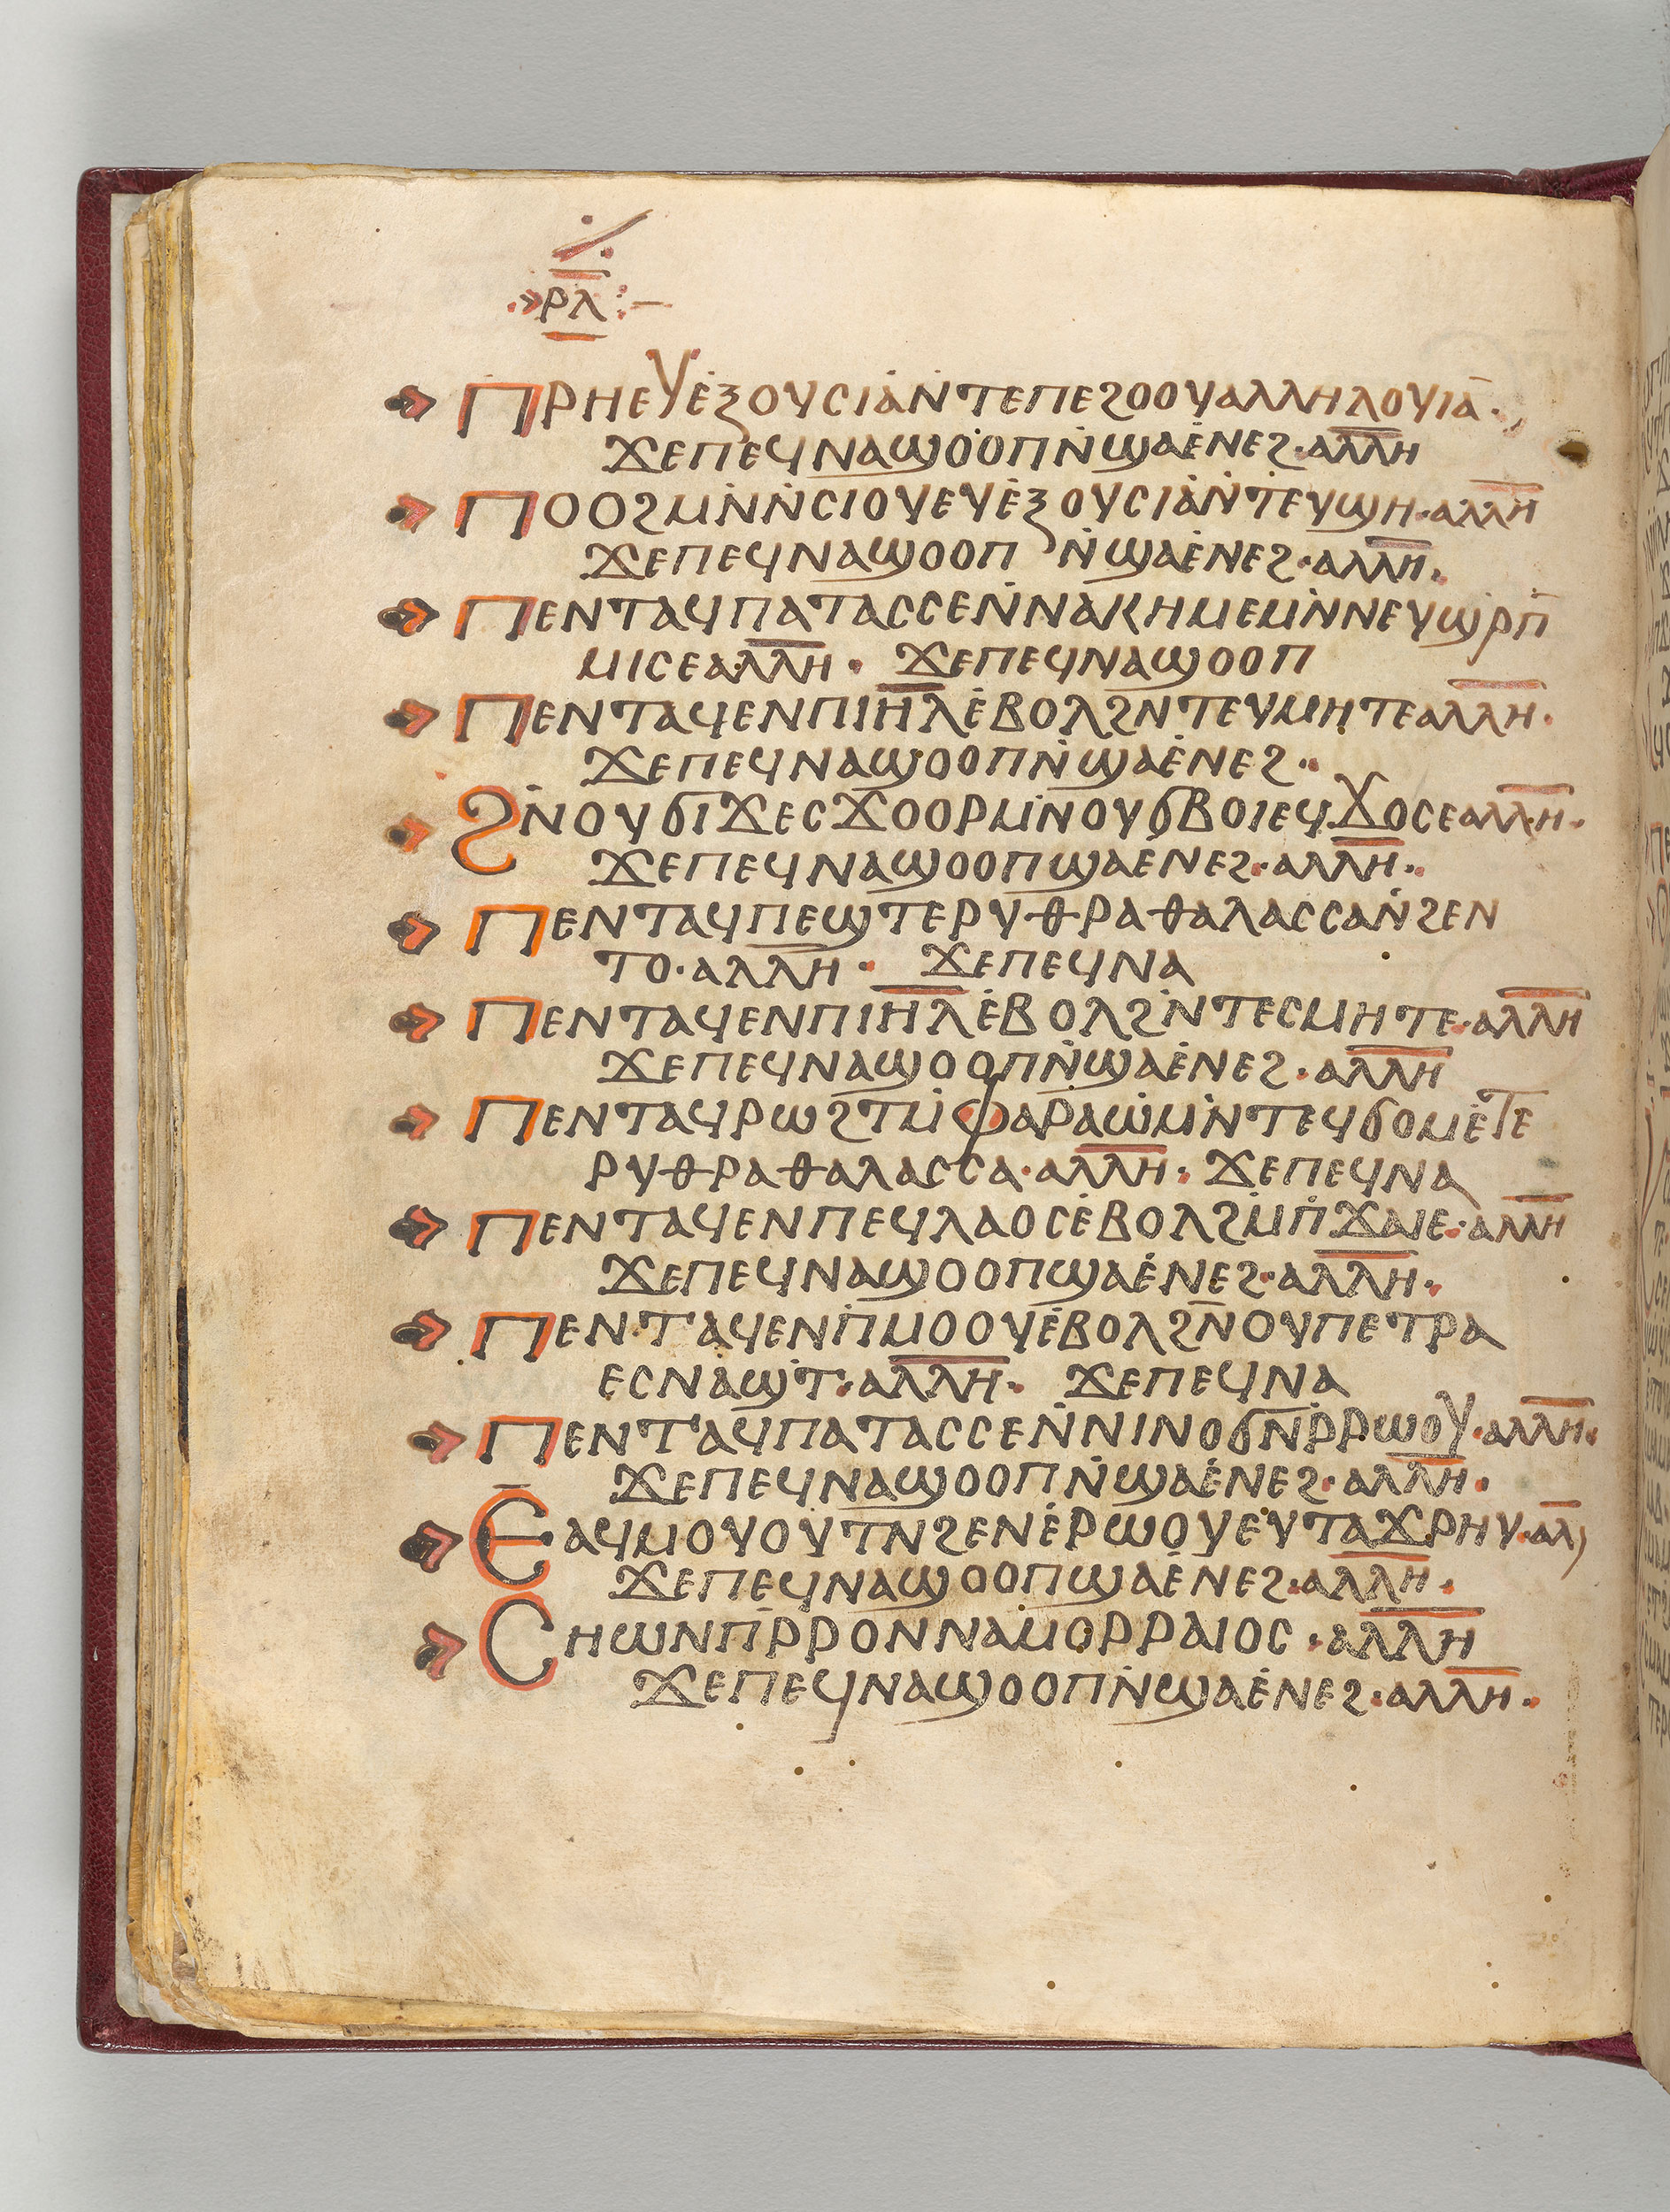 ⲣⲗ
ⲡⲣⲏⲉⲩⲉ̇ⲝⲟⲩⲥⲓⲁ̇ⲛ̇ⲧⲉⲡⲉϩⲟⲟⲩⲁⲗⲗⲏⲗⲟⲩⲓⲁ̅·
ϫⲉⲡⲉϥⲛⲁϣⲟⲟⲡⲛ̇ϣⲁⲉ̇ⲛⲉϩ·ⲁⲗ̅ⲗ̅ⲏ
ⲡⲟⲟϩⲙⲛ̇ⲛ̇ⲥⲓⲟⲩⲉⲩⲉ̇ⲝⲟⲩⲥⲓⲁ̇ⲛ̇ⲧⲉⲩϣⲏ·ⲁⲗ̅ⲗ̅ⲏ̅
ϫⲉⲡⲉϥⲛⲁϣⲟⲟⲡ ⲛ̇ϣⲁⲉ̇ⲛⲉϩ·ⲁⲗ̅ⲗ̅ⲏ·
ⲡⲉⲛⲧⲁϥⲡⲁⲧⲁⲥⲥⲉⲛ̇ⲛⲁⲕⲏⲙⲉⲙⲛ̇ⲛⲉⲩϣⲣⲡ̅
ⲙⲓⲥⲉⲁⲗ̅ⲗ̅ⲏ· ϫⲉⲡⲉϥⲛⲁϣⲟⲟⲡ
ⲡⲉⲛⲧⲁϥⲉⲛⲡⲓⲏ̅ⲗ̅ⲉ̇ⲃⲟⲗϩⲛⲧⲉⲩⲙⲏⲧⲉⲁⲗ̅ⲗ̅ⲏ̅·
ϫⲉⲡⲉϥⲛⲁϣⲟⲟⲡⲛ̇ϣⲁⲉ̇ⲛⲉϩ·
ϩⲛ̇ⲟⲩϭⲓϫⲉⲥϫⲟⲟⲣⲙⲛ̇ⲟⲩϭⲃⲟⲓⲉϥϫⲟⲥⲉⲁⲗ̅ⲗ̅ⲏ̅·
ϫⲉⲡⲉϥⲛⲁϣⲟⲟⲡϣⲁⲉ̇ⲛⲉϩ·ⲁⲗ̅ⲗ̅ⲏ·
ⲡⲉⲛⲧⲁϥⲡⲉϣⲧⲉⲣⲩⲑⲣⲁⲑⲁⲗⲁⲥⲥⲁⲛ̇ϩⲉⲛ
ⲧⲟ·ⲁⲗ̅ⲗ̅ⲏ· ϫⲉⲡⲉϥⲛⲁ
ⲡⲉⲛⲧⲁϥⲉⲛⲡⲓⲏ̅ⲗ̅ⲉ̇ⲃⲟⲗϩⲛ̇ⲧⲉⲥⲙⲏⲧⲉ·ⲁⲗ̅ⲗ̅ⲏ̅
ϫⲉⲡⲉϥⲛⲁϣⲟⲟⲡⲛ̇ϣⲁⲉ̇ⲛⲉϩ·ⲁⲗ̅ⲗ̅ⲏ̅
ⲡⲉⲛⲧⲁϥⲣⲱϩⲧⲙ̇ⲫⲁⲣⲁⲱ̇ⲙⲛ̇ⲧⲉϥϭⲟⲙⲉ̇ⲧⲉ
ⲣⲩⲑⲣⲁⲑⲁⲗⲁⲥⲥⲁ·ⲁⲗ̅ⲗ̅ⲏ· ϫⲉⲡⲉϥⲛⲁ
ⲡⲉⲛⲧⲁϥⲉⲛⲡⲉϥⲗⲁⲟⲥⲉ̇ⲃⲟⲗϩⲙ̇ⲡ̇ϫⲁⲓⲉ·ⲁⲗ̅ⲗ̅ⲏ̅
ϫⲉⲡⲉϥⲛⲁϣⲟⲟⲡϣⲁⲉ̇ⲛⲉϩ·ⲁⲗ̅ⲗ̅ⲏ·
ⲡⲉⲛⲧⲁϥⲉⲛⲡ̅ⲙⲟⲟⲩⲉ̇ⲃⲟⲗϩⲛ̅ⲟⲩⲡⲉⲧⲣⲁ
ⲉⲥⲛⲁϣⲧ̇·ⲁⲗ̅ⲗ̅ⲏ· ϫⲉⲡⲉϥⲛⲁ
ⲡⲉⲛⲧⲁϥⲡⲁⲧⲁⲥⲥⲉⲛ̇ⲛⲓⲛⲟϭⲛ̅ⲣ̅ⲣⲱⲟⲩ·ⲁⲗ̅ⲗ̅ⲏ̅·
ϫⲉⲡⲉϥⲛⲁϣⲟⲟⲡⲛ̇ϣⲁⲉ̇ⲛⲉϩ·ⲁⲗ̅ⲗ̅ⲏ·
ⲉ̅ⲁϥⲙⲟⲩⲟⲩⲧⲛ̅ϩⲉⲛⲉ̇ⲣⲱⲟⲩⲉⲩⲧⲁϫⲣⲏⲩ·ⲁ̅ⲗ̅
ϫⲉⲡⲉϥⲛⲁϣⲟⲟⲡϣⲁⲉ̇ⲛⲉϩ·ⲁⲗ̅ⲗ̅ⲏ·
ⲥⲏⲱⲛⲡ̅ⲣ̅ⲣⲟⲛⲛⲁⲙⲟⲣⲣⲁⲓⲟⲥ·ⲁⲗ̅ⲗ̅ⲏ̅
ϫⲉⲡⲉϥⲛⲁϣⲟⲟⲡⲛ̇ϣⲁⲉ̇ⲛⲉϩ·ⲁⲗ̅ⲗ̅ⲏ̅·